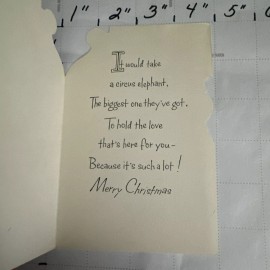 1" 2" 3" 4" 5" 6
It would take
a circus elephant,
The biggest one they've got,
To hold the love
that's here for you–
Because it's such a lot!
Merry Christmas